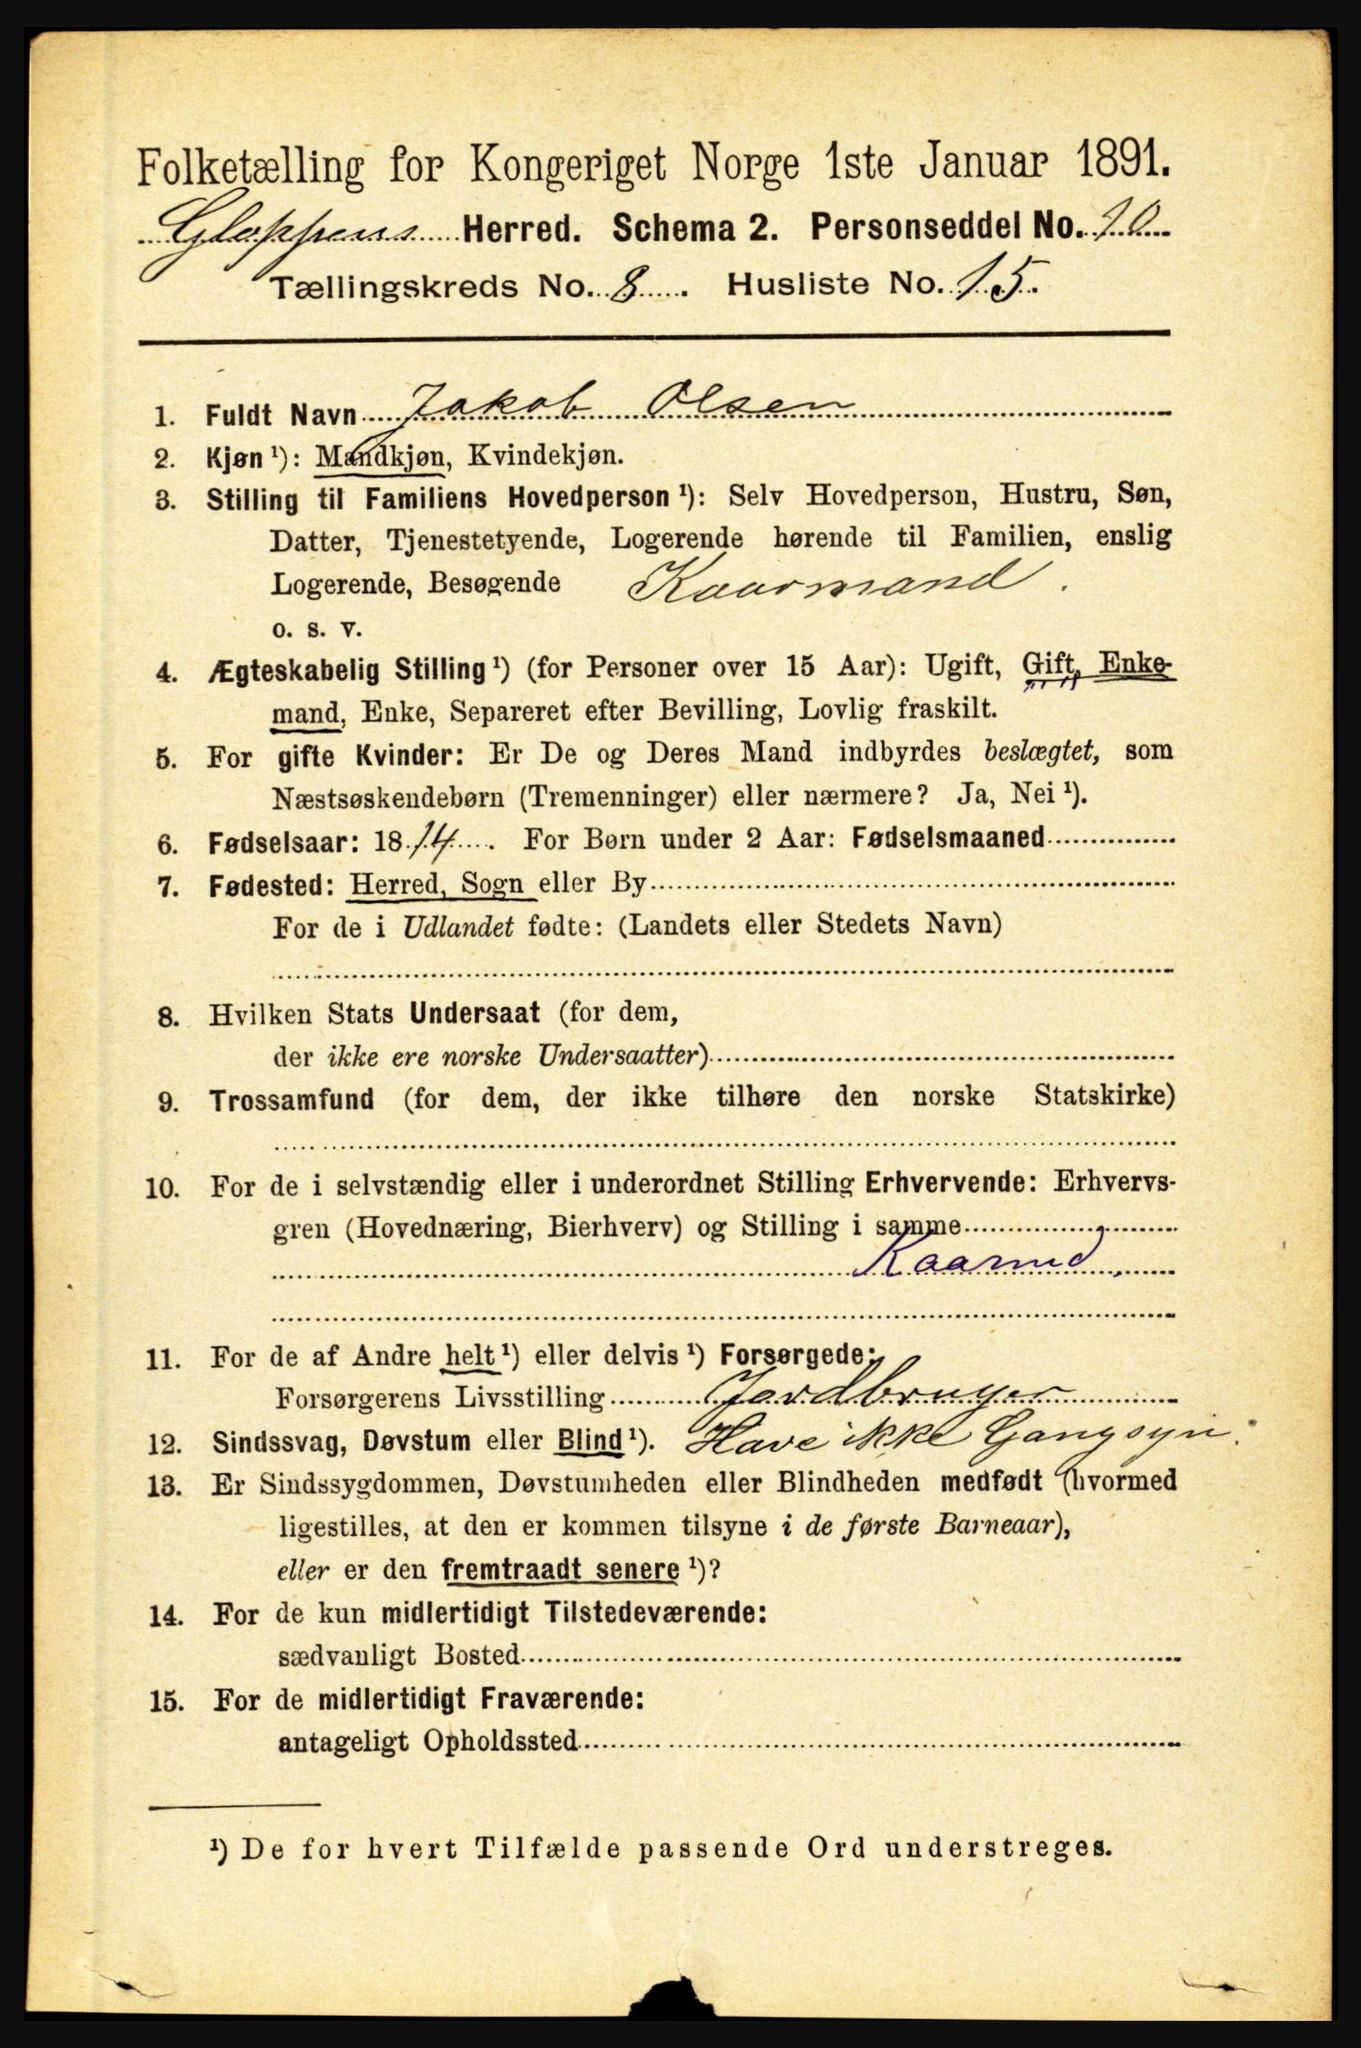 Folketælling for Kongeriget Norge 1ste Januar 1891.
Gloppens Herred. Schema 2. Personseddel No. 10
Tællingskreds No. 8. Husliste No. 15.
1. Fuldt Navn Jakob Olsen
2. Kjøn ¹): Mandkjøn, Kvindekjøn.
3. Stilling til Familiens Hovedperson ¹): Selv Hovedperson, Hustru, Søn,
Datter, Tjenestetyende, Logerende hørende til Familien, enslig
Logerende, Besøgende Kaarmand.
o. s. v.
4. Ægteskabelig Stilling ¹) (for Personer over 15 Aar): Ugift, Gift, Enke-
mand, Enke, Separeret efter Bevilling, Lovlig fraskilt.
5. For gifte Kvinder: Er De og Deres Mand indbyrdes beslægtet, som
Næstsøskendebørn (Tremenninger) eller nærmere? Ja, Nei ¹).
6. Fødselsaar: 1814. For Børn under 2 Aar: Fødselsmaaned
7. Fødested: Herred, Sogn eller By
For de i Udlandet fødte: (Landets eller Stedets Navn)
8. Hvilken Stats Undersaat (for dem,
der ikke ere norske Undersaatter)
9. Trossamfund (for dem, der ikke tilhøre den norske Statskirke)
10. For de i selvstændig eller i underordnet Stilling Erhvervende: Erhvervs-
gren (Hovednæring, Bierhverv) og Stilling i samme
Kaarmd.
11. For de af Andre helt ¹) eller delvis ¹) Forsørgede:
Forsørgerens Livsstilling Jordbruger
12. Sindssvag, Døvstum eller Blind ¹). Have ikke Gangsyn.
13. Er Sindssygdommen, Døvstumheden eller Blindheden medfødt (hvormed
ligestilles, at den er kommen tilsyne i de første Barneaar),
eller er den fremtraadt senere ¹)?
14. For de kun midlertidigt Tilstedeværende:
sædvanligt Bosted
15. For de midlertidigt Fraværende:
antageligt Opholdssted
¹) De for hvert Tilfælde passende Ord understreges.